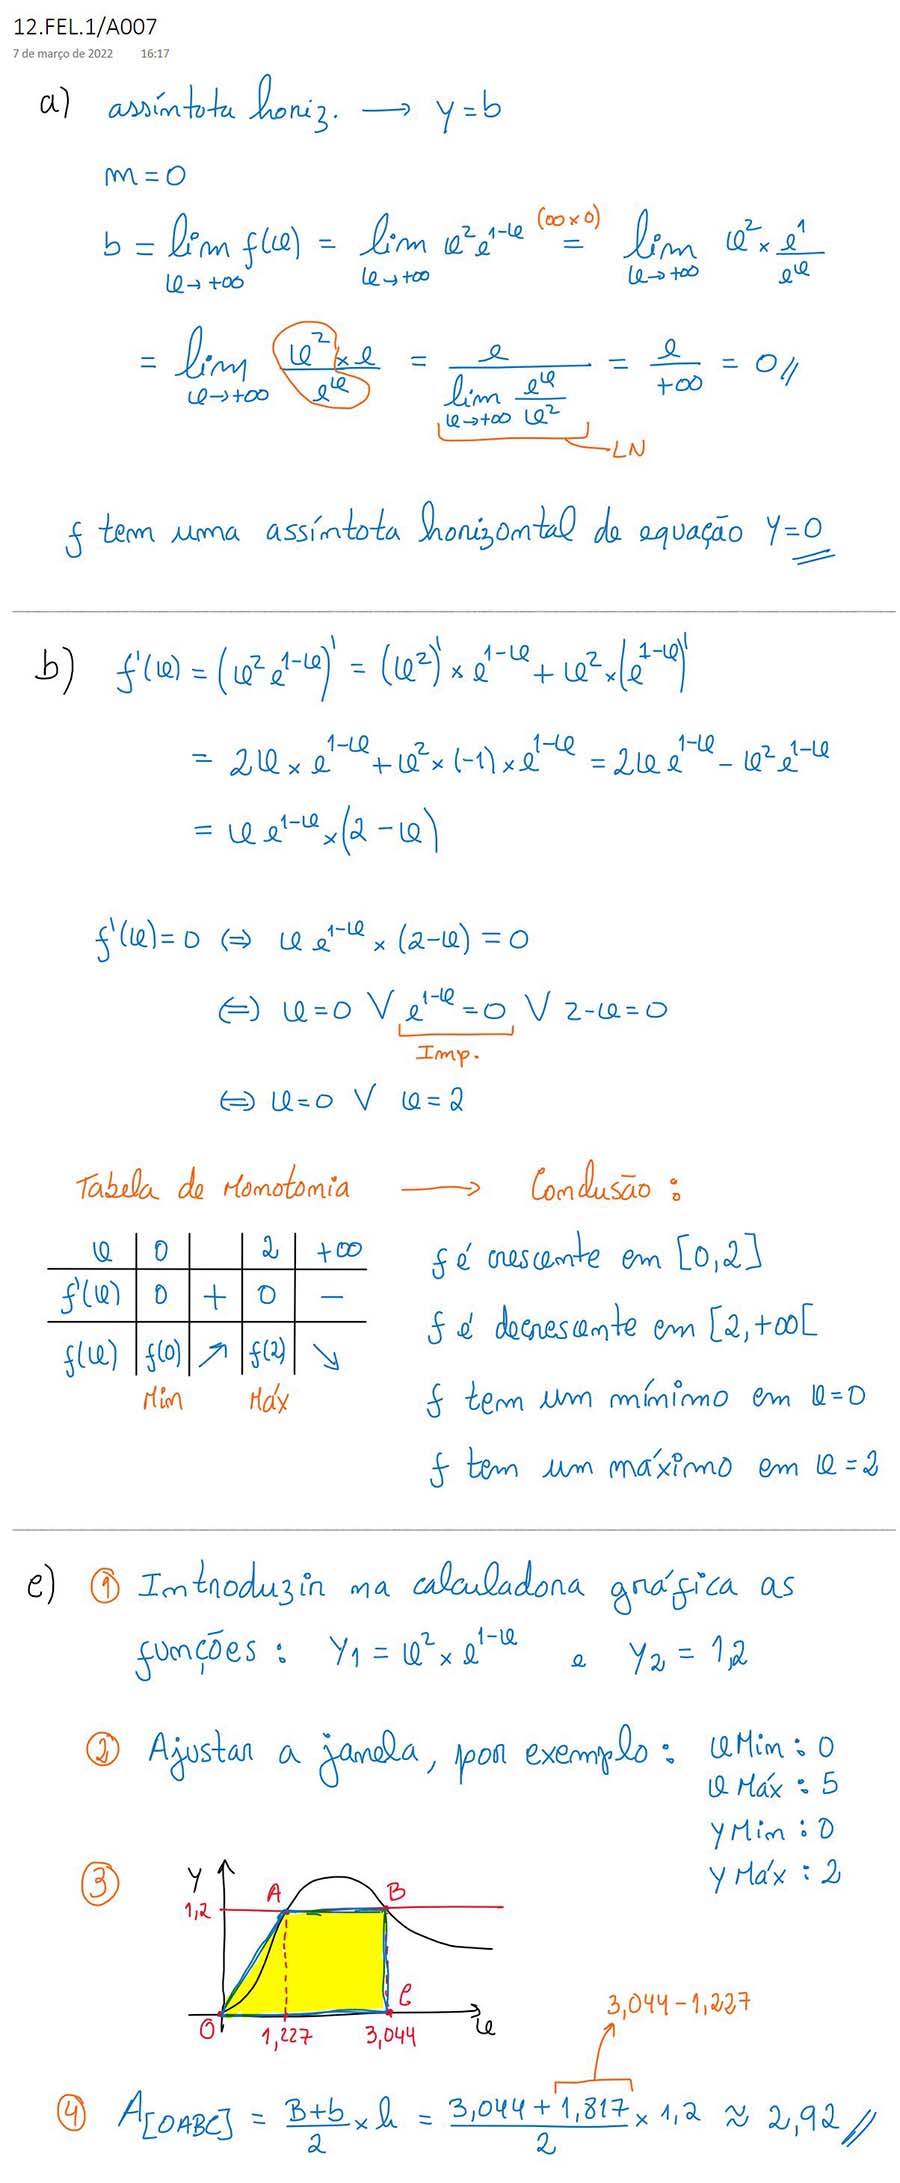 12.FEL.1/A007
7 de março de 2022 16:17
a) assíntota horiz. → y=b
m=0
b = lim x→+∞ f(x) = lim x→+∞ x² e^(1-x) (∞×0) = lim x→+∞ x² × e¹/e^x
= lim x→+∞ (x² × e)/e^x = e/(lim x→+∞ e^x/x²) = e/+∞ = 0//
LN
f tem uma assíntota horizontal de equação y=0
b) f'(x) = (x² e^(1-x))' = (x²)' × e^(1-x) + x² × (e^(1-x))'
= 2x × e^(1-x) + x² × (-1) × e^(1-x) = 2x e^(1-x) - x² e^(1-x)
= x e^(1-x) × (2-x)
f'(x)=0 ⇔ x e^(1-x) × (2-x) = 0
⇔ x=0 ∨ e^(1-x)=0 ∨ 2-x=0
Imp.
⇔ x=0 ∨ x=2
Tabela de Monotonia → Conclusão:
x 0 2 +∞
f'(x) 0 + 0 -
f(x) f(0) ↗ f(2) ↘
Min Máx
f é crescente em [0,2]
f é decrescente em [2,+∞[
f tem um mínimo em x=0
f tem um máximo em x=2
c) ① Introduzir na calculadora gráfica as
funções: Y1 = x² × e^(1-x) e Y2 = 1,2
② Ajustar a janela, por exemplo: xMin: 0
xMáx: 5
yMin: 0
yMáx: 2
③ y
A B
1,2
C
O 1,227 3,044 x
3,044-1,227
④ A[OABC] = (B+b)/2 × h = (3,044+1,817)/2 × 1,2 ≈ 2,92//